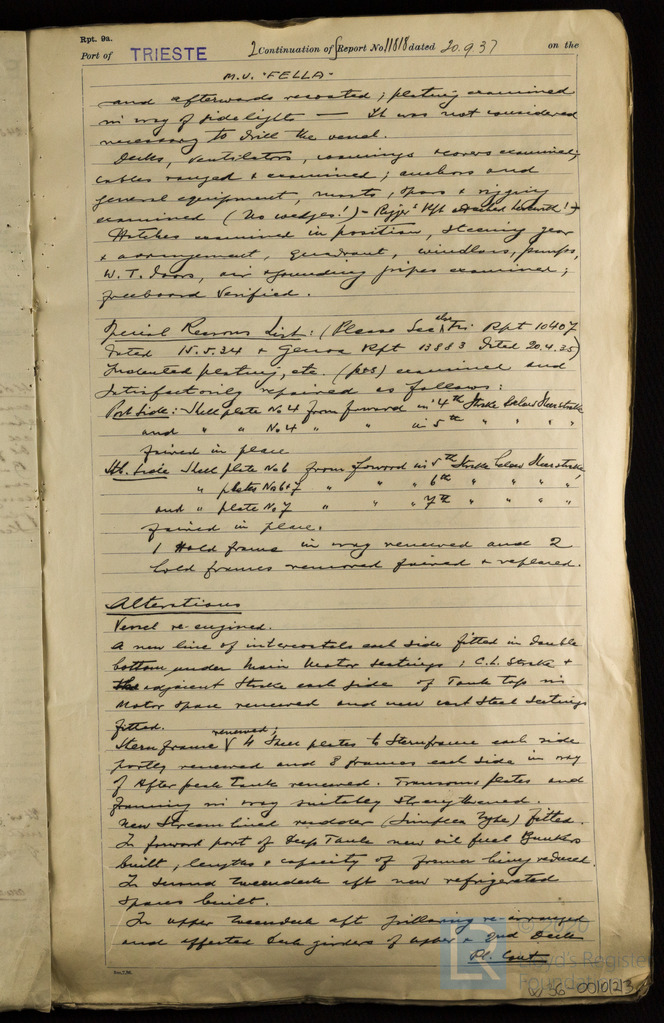 Rpt. 9a.
Port of TRIESTE 2 Continuation of Report No. 11818 dated 20.9.37 on the
M.V. "FELLA"
and afterwards recoated; plating examined
in way of sidelights — It was not considered
necessary to drill the vessel.
Decks, Ventilators, coamings & covers examined;
cables ranged & examined; anchors and
general equipment, masts, spars & rigging
examined (No wedges!) - Rigg^g Rpt
Hatches examined in position, steering gear
& arrangement, quadrant, windlass, pumps,
W.T. Doors, air & sounding pipes examined;
freeboard verified.
Special Reasons List: (Please See also Tri Rpt 10407
dated 15.5.34 & Genoa Rpt 13883 dated 20.4.35)
Indented plating, etc. (p&s) examined and
satisfactorily repaired as follows:
Port Side: Shell plate No 4 from forward in 4th Strake below Sheerstrake
and " " No 4 " " in 5th " " "
faired in place
Stb. Side Shell plate No 6 from forward in 5th Strake below Sheerstrake,
" plates No 6 & 7 " " " 6th " " "
and " plate No 7 " " " 7th " " "
faired in place.
1 Hold frame in way renewed and 2
hold frames removed faired & replaced.
Alterations
Vessel re-engined.
A new line of intercostals each side fitted in double
bottom under Main Motor Seatings; C.L. Strake &
adjacent Strake each side of Tank top in
Motor space renewed and new cast steel Seatings
fitted.
Sternframe renewed; 4 Shell plates to Sternframe each side
partly renewed and 8 frames each side in way
of After peak tank renewed. Transoms plates and
framing in way suitably strengthened.
New Streamlined rudder (Simplex Type) fitted.
In forward part of Deep Tank new oil fuel Bunkers
built, lengths & capacity of former being reduced.
In second tweendeck aft new refrigerated
spaces built.
In upper tweendeck aft pillaring re-arranged
and affected deck girders of upper & 2nd Deck
Pl. Cont
© 2020
LR Lloyd's Register
Foundation
W36-0010123